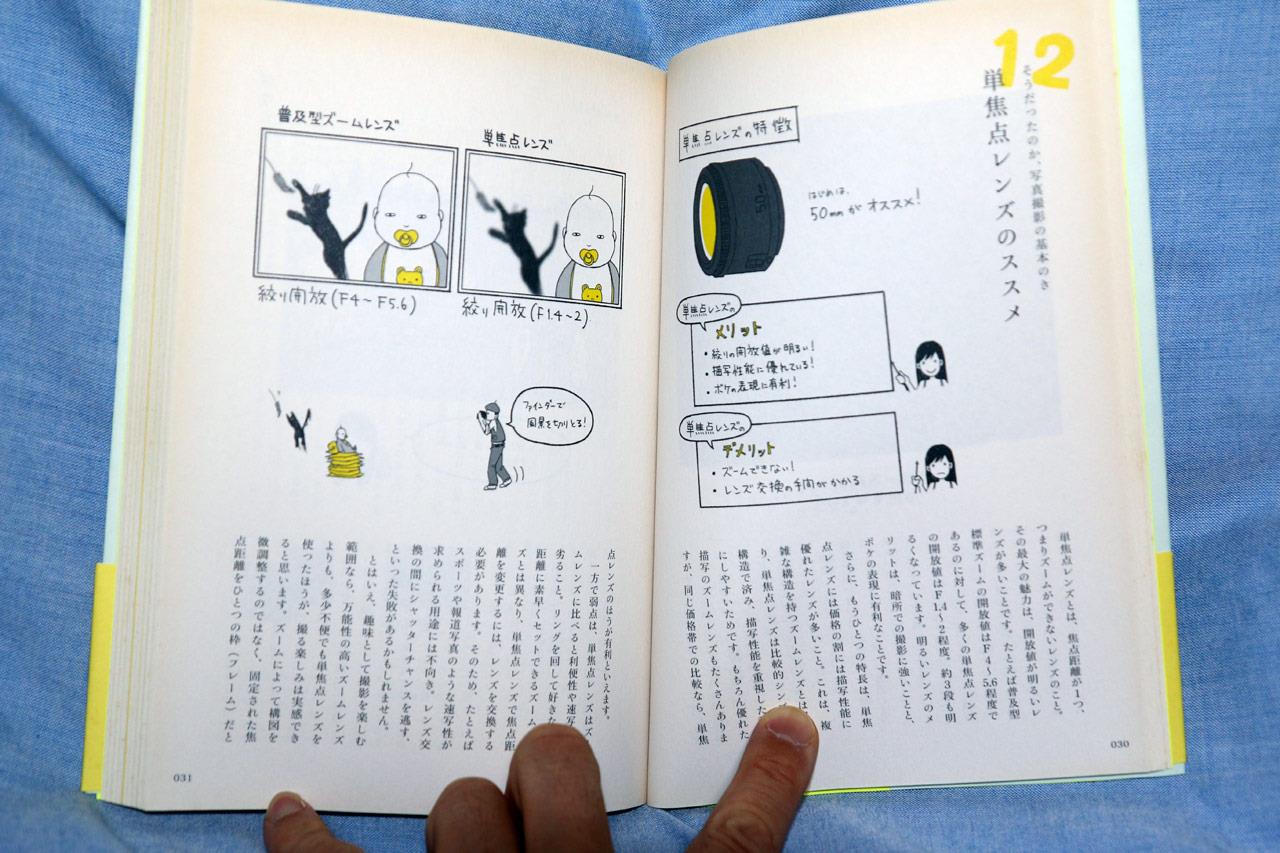 12
そうだったのか、写真撮影の基本のき
単焦点レンズのススメ
単焦点レンズの特徴
はじめは、
50mmがオススメ!
50
単焦点レンズの
メリット
・絞りの開放値が明るい!
・描写性能に優れている!
・ボケの表現に有利!
単焦点レンズの
デメリット
・ズームできない!
・レンズ交換の手間がかかる
単焦点レンズとは、焦点距離が1つ、
つまりズームができないレンズのこと。
その最大の魅力は、開放値が明るいレ
ンズが多いことです。たとえば普及型
標準ズームの開放値はF4〜5.6程度で
あるのに対して、多くの単焦点レンズ
の開放値はF1.4〜2程度。約3段も明
るくなっています。明るいレンズのメ
リットは、暗所での撮影に強いことと、
ボケの表現に有利なことです。
さらに、もうひとつの特長は、単焦
点レンズには価格の割には描写性能に
優れたレンズが多いこと。これは、複
雑な構造を持つズームレンズとは
り、単焦点レンズは比較的シン
構造で済み、描写性能を重視した
にしやすいためです。もちろん優れた
描写のズームレンズもたくさんありま
すが、同じ価格帯での比較なら、単焦
030
普及型ズームレンズ
単焦点レンズ
絞り開放(F4〜F5.6)
絞り開放(F1.4〜2)
ファインダーで
風景を切りとる!
点レンズのほうが有利といえます。
一方で弱点は、単焦点レンズはズ
ムレンズに比べると利便性や速写
劣ること。リングを回して好きな
距離に素早くセットできるズーム
ズとは異なり、単焦点レンズで焦点距
離を変更するには、レンズを交換する
必要があります。そのため、たとえば
スポーツや報道写真のような速写性が
求められる用途には不向き。レンズ交
換の間にシャッターチャンスを逃す、
といった失敗があるかもしれません。
とはいえ、趣味として撮影を楽しむ
範囲なら、万能性の高いズームレンズ
よりも、多少不便でも単焦点レンズを
使ったほうが、撮る楽しみは実感でき
ると思います。ズームによって構図を
微調整するのではなく、固定された焦
点距離をひとつの枠(フレーム)だと
031